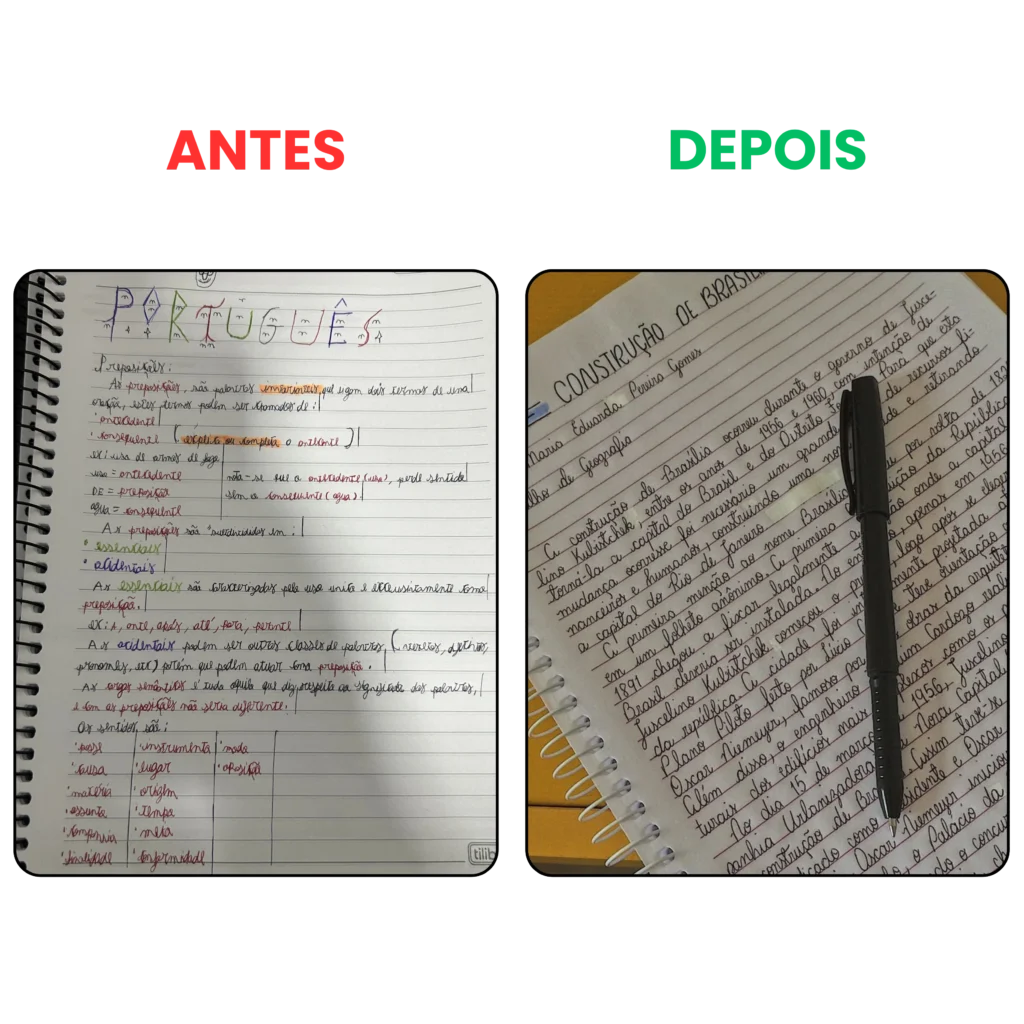 ANTES
DEPOIS
PORTUGUÊS
Preposições:
As preposições, são palavras invariáveis, que ligam dois termos de uma
oração, estes termos podem ser chamados de:
'antecedente
'consequente (explica ou completa o antecedente)
ex: uso de armas de fogo
uso = antecedente
DE = preposição
água = consequente
nota-se que o antecedente (uso), perde sentido
sem o consequente (água).
As preposições são em:
• essenciais
• acidentais
As essenciais são caracterizadas pelo uso único e exclusivamente como
preposição.
ex: a, ante, após, até, para, perante
As acidentais podem ser outras classes de palavras, (verbos, advérbios,
pronomes, etc) porém que podem atuar como preposição.
As semânticos é tudo aquilo que diz respeito ao significado das palavras,
e com as preposições não seria diferente.
Os sentidos são:
'posse 'instrumento 'modo
'causa 'lugar 'oposição
'matéria 'origem
'assunto 'tempo
'companhia 'meta
'finalidade 'conformidade
tilib
CONSTRUÇÃO DE BRASÍLI
Maria Eduarda Pereira Gomes
lho de Geografia
A construção de Brasília ocorreu durante o governo de Jusce-
lino Kubistchek, entre os anos de 1956 e 1960, com intenção de
torná-la a capital do Brasil e do Distrito Para que esta
mudança ocorresse foi necessário um grande de recursos fi-
nanceiros e humanos, construindo uma nova e retirando
capital do Rio de Janeiro.
A primeira menção ao nome Brasília por volta de 182
em um folheto anônimo. A primeira ção da República
1891 chegou a fixar legalmente a onde a capital
Brasil deveria ser instalada. No en apenas em 1956
Juscelino Kubistchek começou o pr logo após se elege
da república. A cidade foi in mente projetada a
Plano Piloto feito por Lúcio teve orientação
Oscar Niemeyer, famoso por obras da arquitet
Além disso, o engenheiro Cardozo reali
turais dos edifícios mais plexos como os
No dia 15 de março 1956, Juscelino
panhia Urbanizadora Nova Capital
construção de Bra Assim tem-se
dicado como sidente e Oscar
Oscar Niemeyer iniciou
o Palácio da
do o concur